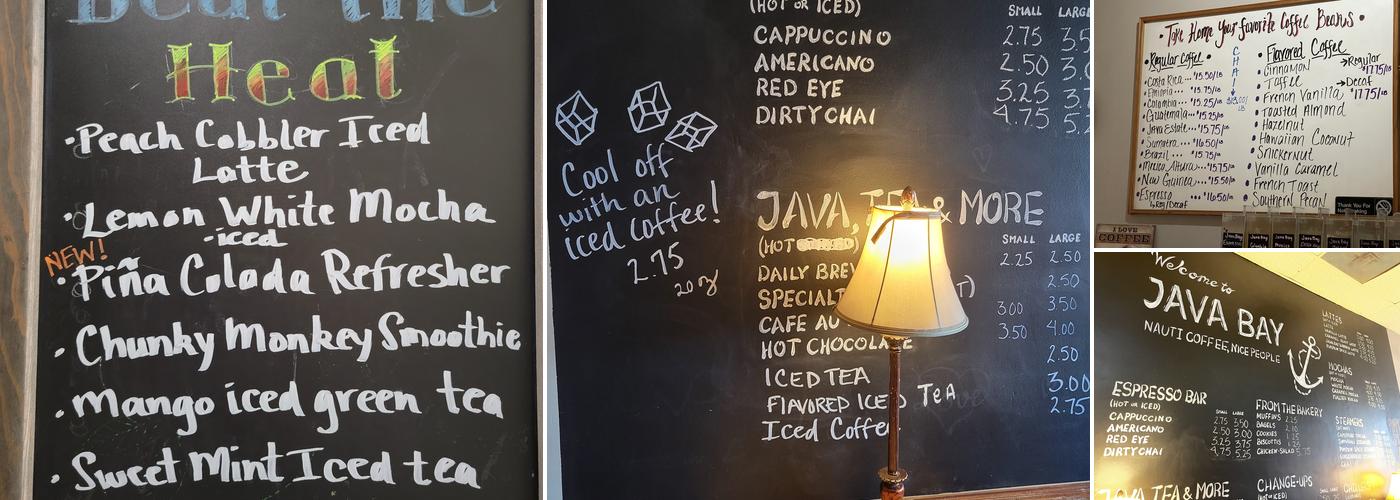 Beat the
Heat
Peach Cobbler Iced
Latte
Lemon White Mocha
-iced
NEW!
Piña Colada Refresher
Chunky Monkey Smoothie
Mango iced green tea
Sweet Mint Iced tea
(HOT OR ICED)
SMALL LARGE
CAPPUCCINO 2.75
AMERICANO 2.50
RED EYE 3.25
DIRTY CHAI 4.75
Cool off
with an
iced coffee!
2.75
20oz
JAVA, TEA & MORE
(HOT
SMALL LARGE
2.25 2.50
DAILY BREW 2.50
3.00 3.50
CAFE AU 3.50 4.00
HOT CHOCOLATE 2.50
ICED TEA 3.00
FLAVORED ICED TEA 2.75
Iced Coffee
Take Home Your favorite Coffee Beans
Regular Coffee
Costa Rica... $15.50/lb
Ethiopia ... $15.75/lb
Colombia ... $15.25/lb
Guatemala... $15.25/lb
Java Estate... $15.75/lb
Sumatra... $16.50/lb
Brazil ... $15.75/lb
New Guinea... $15.50/lb
Espresso ... $16.50/lb
Reg/Decaf
CHAI
Flavored Coffee
Regular
$17.75/lb
Decaf
$17.75/lb
Cinnamon
Toffee
French Vanilla
Toasted Almond
Hazelnut
Hawaiian Coconut
Snickernut
Vanilla Caramel
French Toast
Southern Pecan
Thank You For
Not Smoking
I LOVE
COFFEE
Welcome to
JAVA BAY
NAUTI COFFEE, NICE PEOPLE
ESPRESSO BAR
(HOT OR ICED)
SMALL LARGE
CAPPUCCINO 2.75 3.50
AMERICANO 2.50 3.00
RED EYE 3.25 3.75
DIRTY CHAI 4.75 5.25
FROM THE BAKERY
MUFFINS 2.25
BAGELS
COOKIES
BISCOTTIS
CHICKEN-SALAD
LATTES
MOCHAS
STEAMERS
JAVA TEA & MORE
CHANGE-UPS